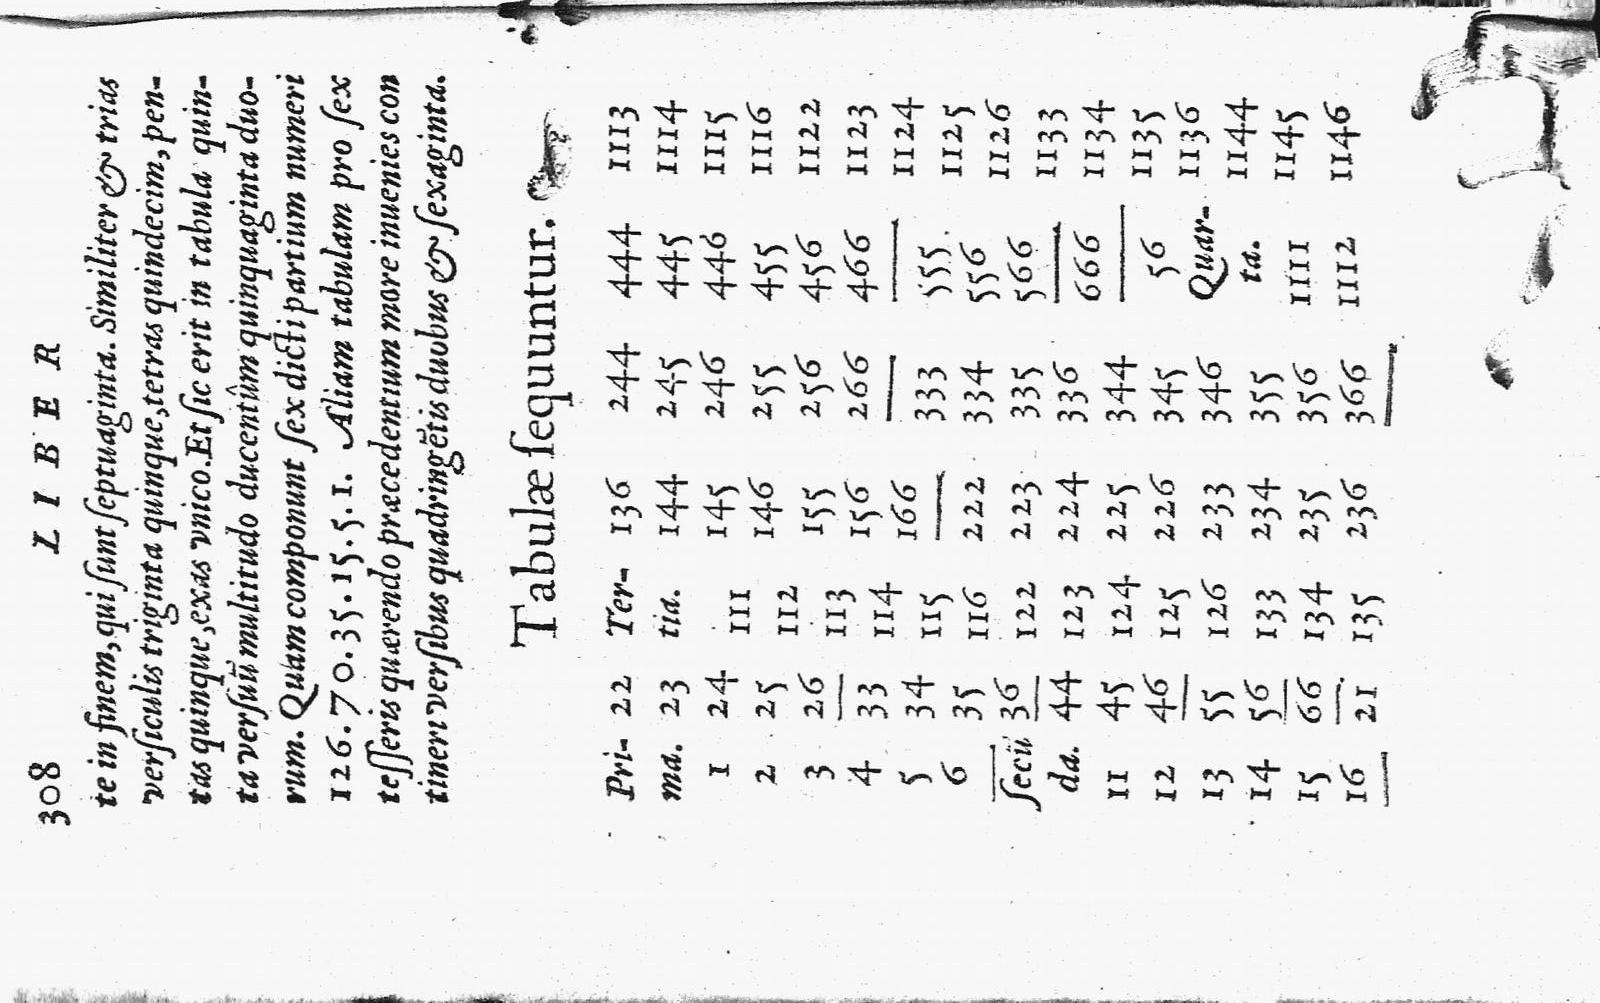 308 LIBER
te in finem, qui ſunt ſeptuaginta. Similiter & trias
verſiculis triginta quinque, tetras quindecim, pen-
tas quinque, exas vnico. Et ſic erit in tabula quin-
ta verſuũ multitudo ducentûm quinquaginta duo-
rum. Quam componunt ſex dicti partium numeri
126.70.35.15.5.1. Aliam tabulam pro ſex
teſſeris quærendo præcedentium more inuenies con
tineri verſibus quadringẽtis duobus & ſexaginta.
Tabulæ ſequuntur.
Pri-
ma.
1
2
3
4
5
6
ſecũ
da.
11
12
13
14
15
16
22
23
24
25
26
33
34
35
36
44
45
46
55
56
66
21
Ter-
tia.
111
112
113
114
115
116
122
123
124
125
126
133
134
135
136
144
145
146
155
156
166
222
223
224
225
226
233
234
235
236
244
245
246
255
256
266
333
334
335
336
344
345
346
355
356
366
444
445
446
455
456
466
555
556
566
666
56
Quar-
ta.
1111
1112
1113
1114
1115
1116
1122
1123
1124
1125
1126
1133
1134
1135
1136
1144
1145
1146